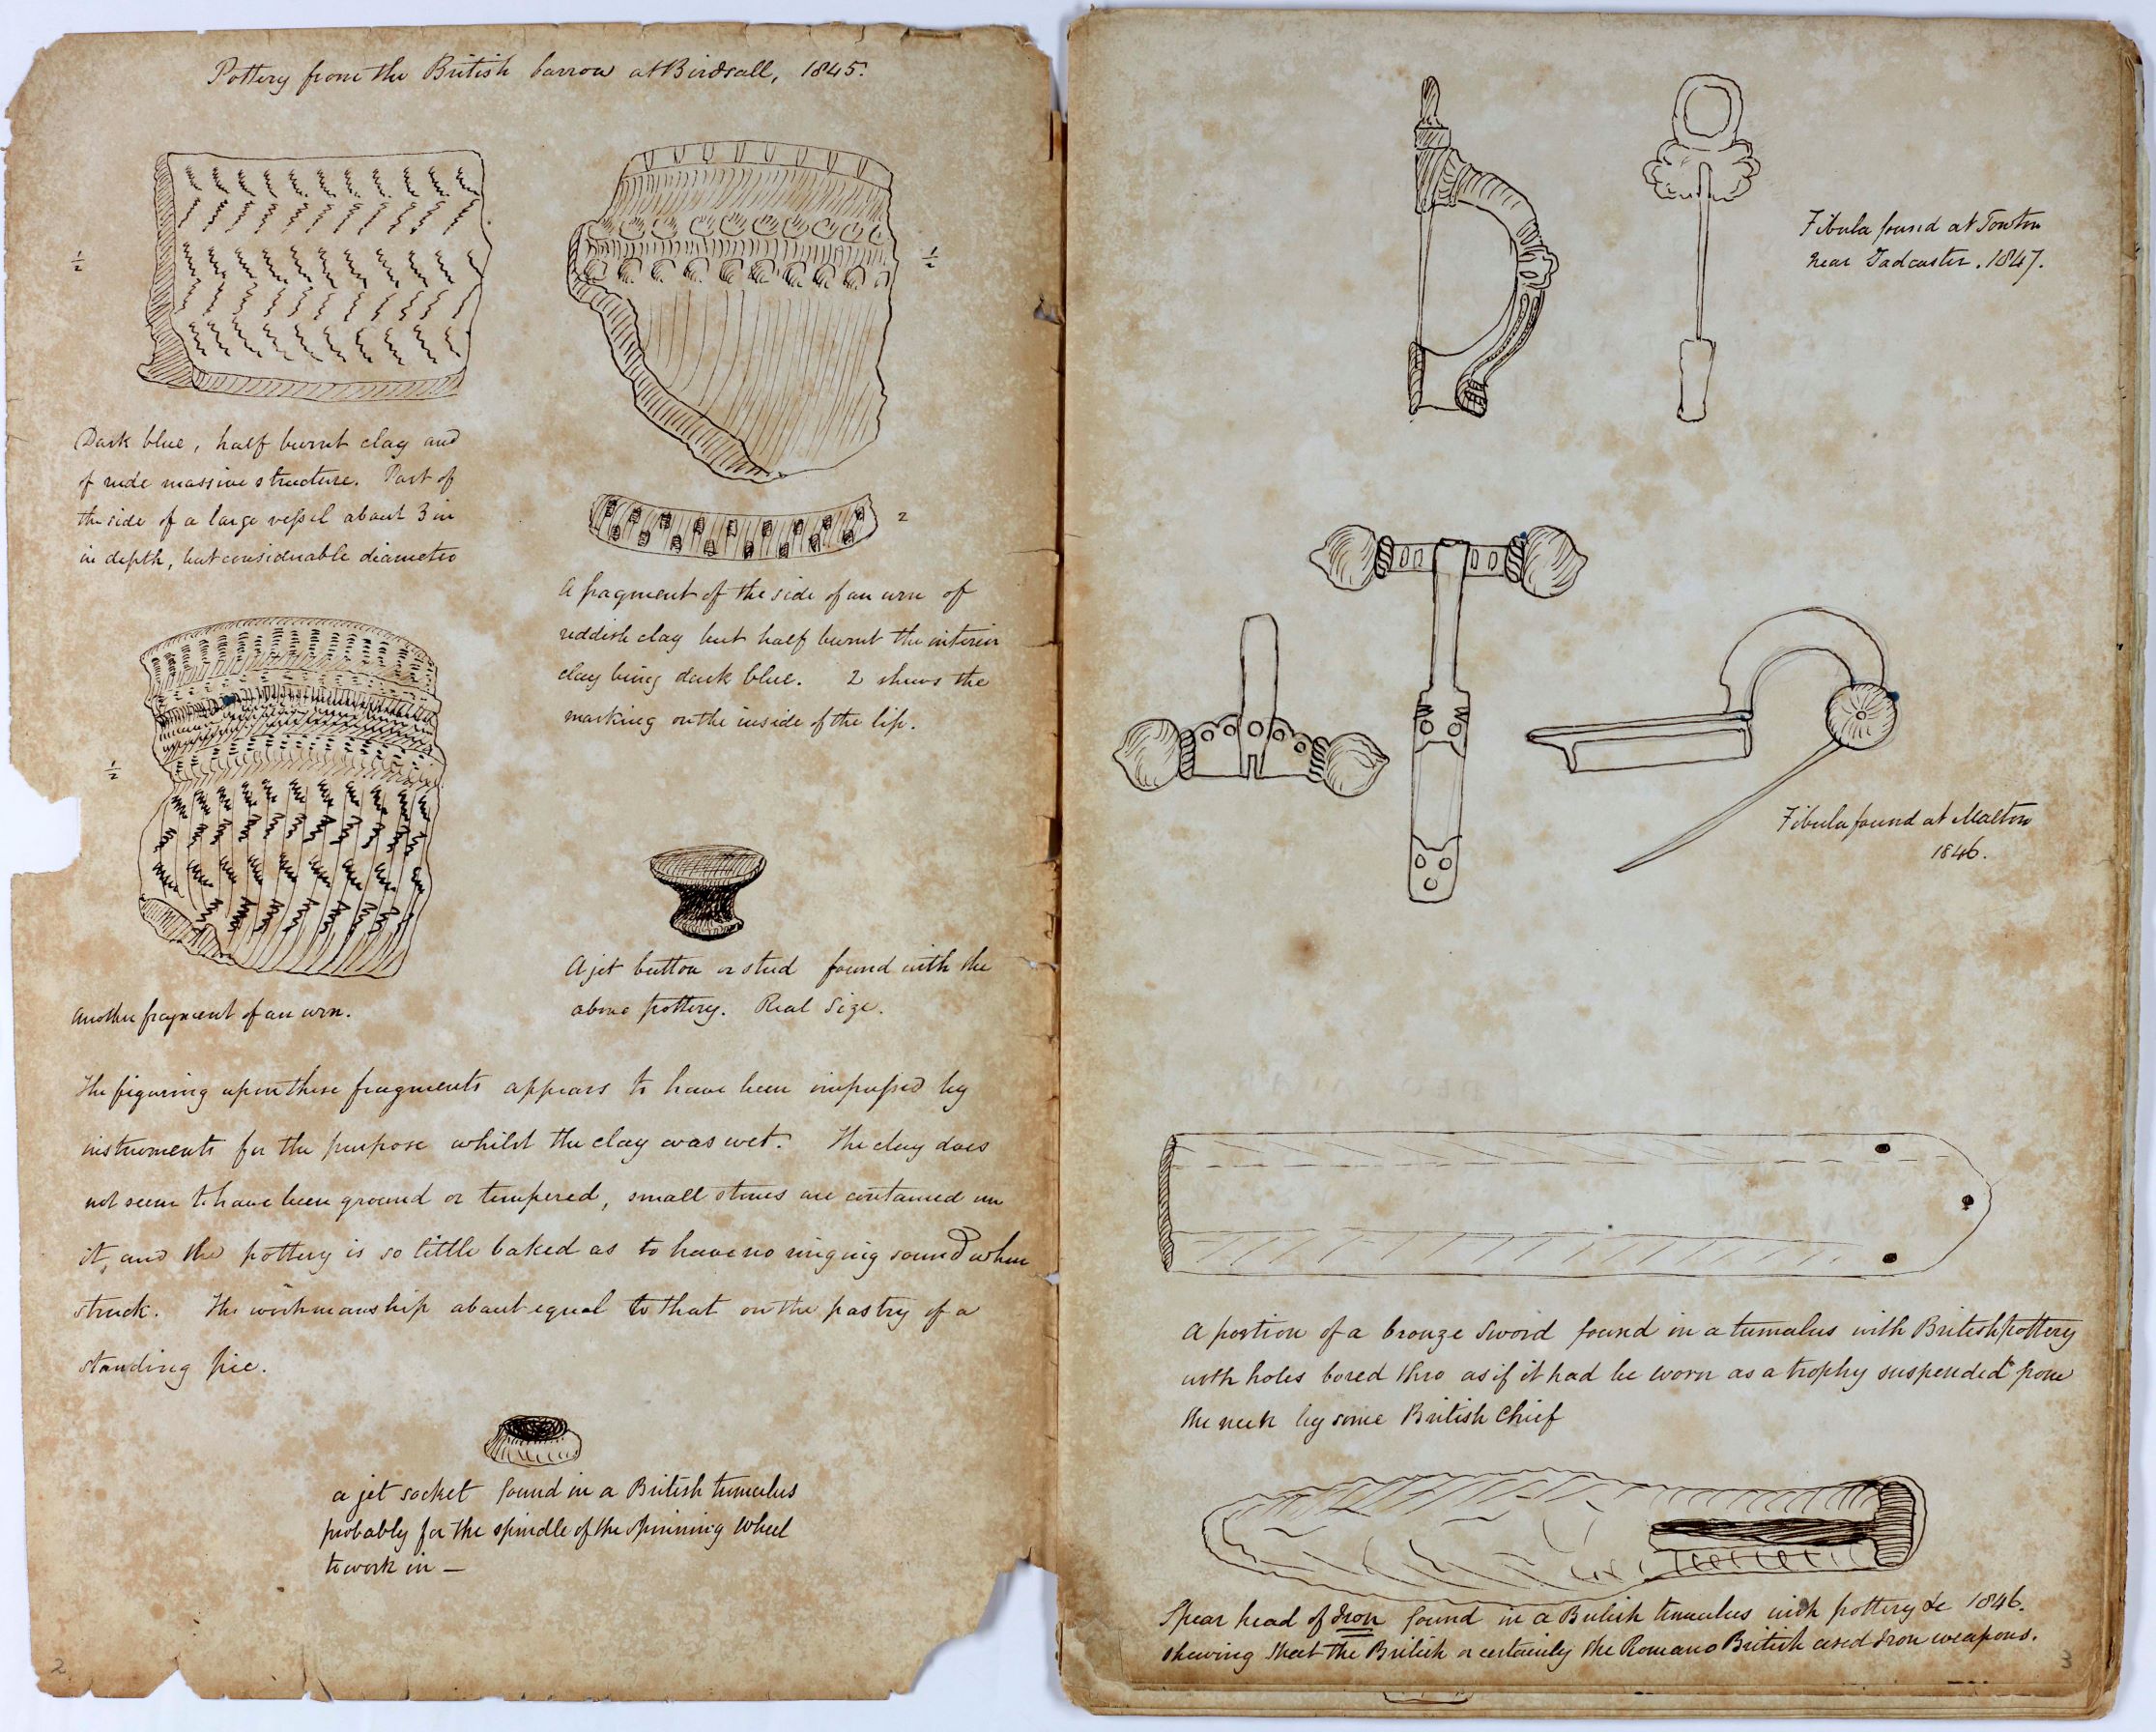 Pottery from the British barrow at Birdsall, 1845.
1/2
1/2
Dark blue, half burnt clay and
of rude massive structure. Part of
the side of a large vessel about 3 in
in depth, but considerable diameter
2
A fragment of the side of an urn of
reddish clay but half burnt the interior
clay being dark blue. 2 shews the
marking on the inside of the lip.
1/2
Another fragment of an urn.
A jet button or stud found with the
above pottery. Real Size.
The figuring upon these fragments appears to have been impressed by
instruments for the purpose whilst the clay was wet. The clay does
not seem to have been ground or tempered, small stones are contained in
it, and the pottery is so little baked as to have no ringing sound when
struck. The workmanship about equal to that on the pastry of a
standing pie.
a jet socket found in a British tumulus
probably for the spindle of the spinning wheel
to work in —
2
Fibula found at Towton
near Tadcaster. 1847.
Fibula found at Malton
1846.
A portion of a bronze sword found in a tumulus with British pottery
with holes bored thro as if it had be worn as a trophy suspended from
the neck by some British Chief
Spear head of Iron found in a British tumulus with pottery &c 1846.
shewing that the British or certainly the Romano British used Iron weapons.
3